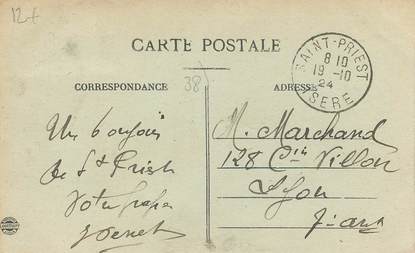 12+
CARTE POSTALE
38
CORRESPONDANCE
ADRESSE
SAINT-PRIEST
8 10
19-10
24
ISERE
Un bonjour
de St Priest
Votre
M. Marchand
128 Cin Villon
Lyon